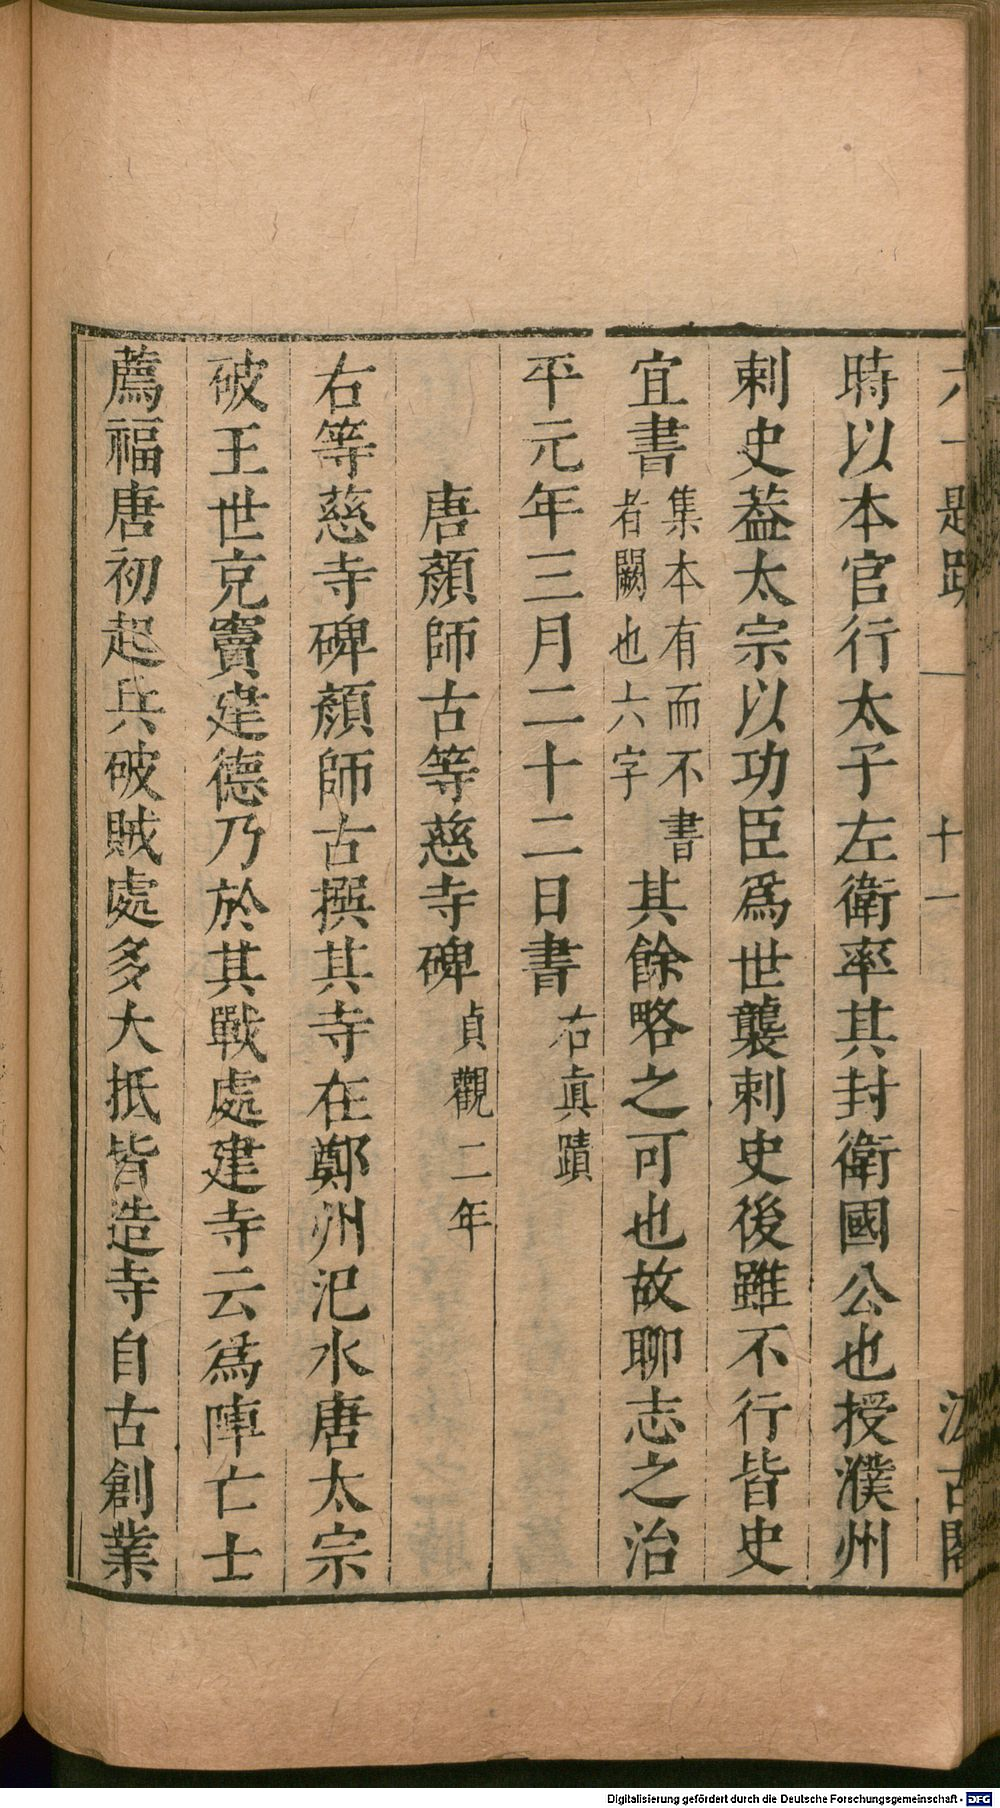 六一題跋 十一 汲古閣
時以本官行太子左衛率其封衛國公也授濮州
刺史葢太宗以功臣爲世襲刺史後雖不行皆史
宜書集本有而不書者闕也六字其餘略之可也故聊志之治
平元年三月二十二日書右眞蹟
唐顏師古等慈寺碑貞觀二年
右等慈寺碑顏師古撰其寺在鄭州汜水唐太宗
破王世充竇建德乃於其戰處建寺云爲陣亡士
薦福唐初起兵破賊處多大抵皆造寺自古創業
Digitalisierung gefördert durch die Deutsche Forschungsgemeinschaft - DFG